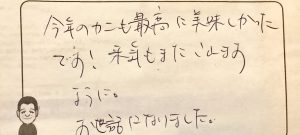 今年のカニも最高に美味しかった
です！来年もまたこれます
ように。
お世話になりました。